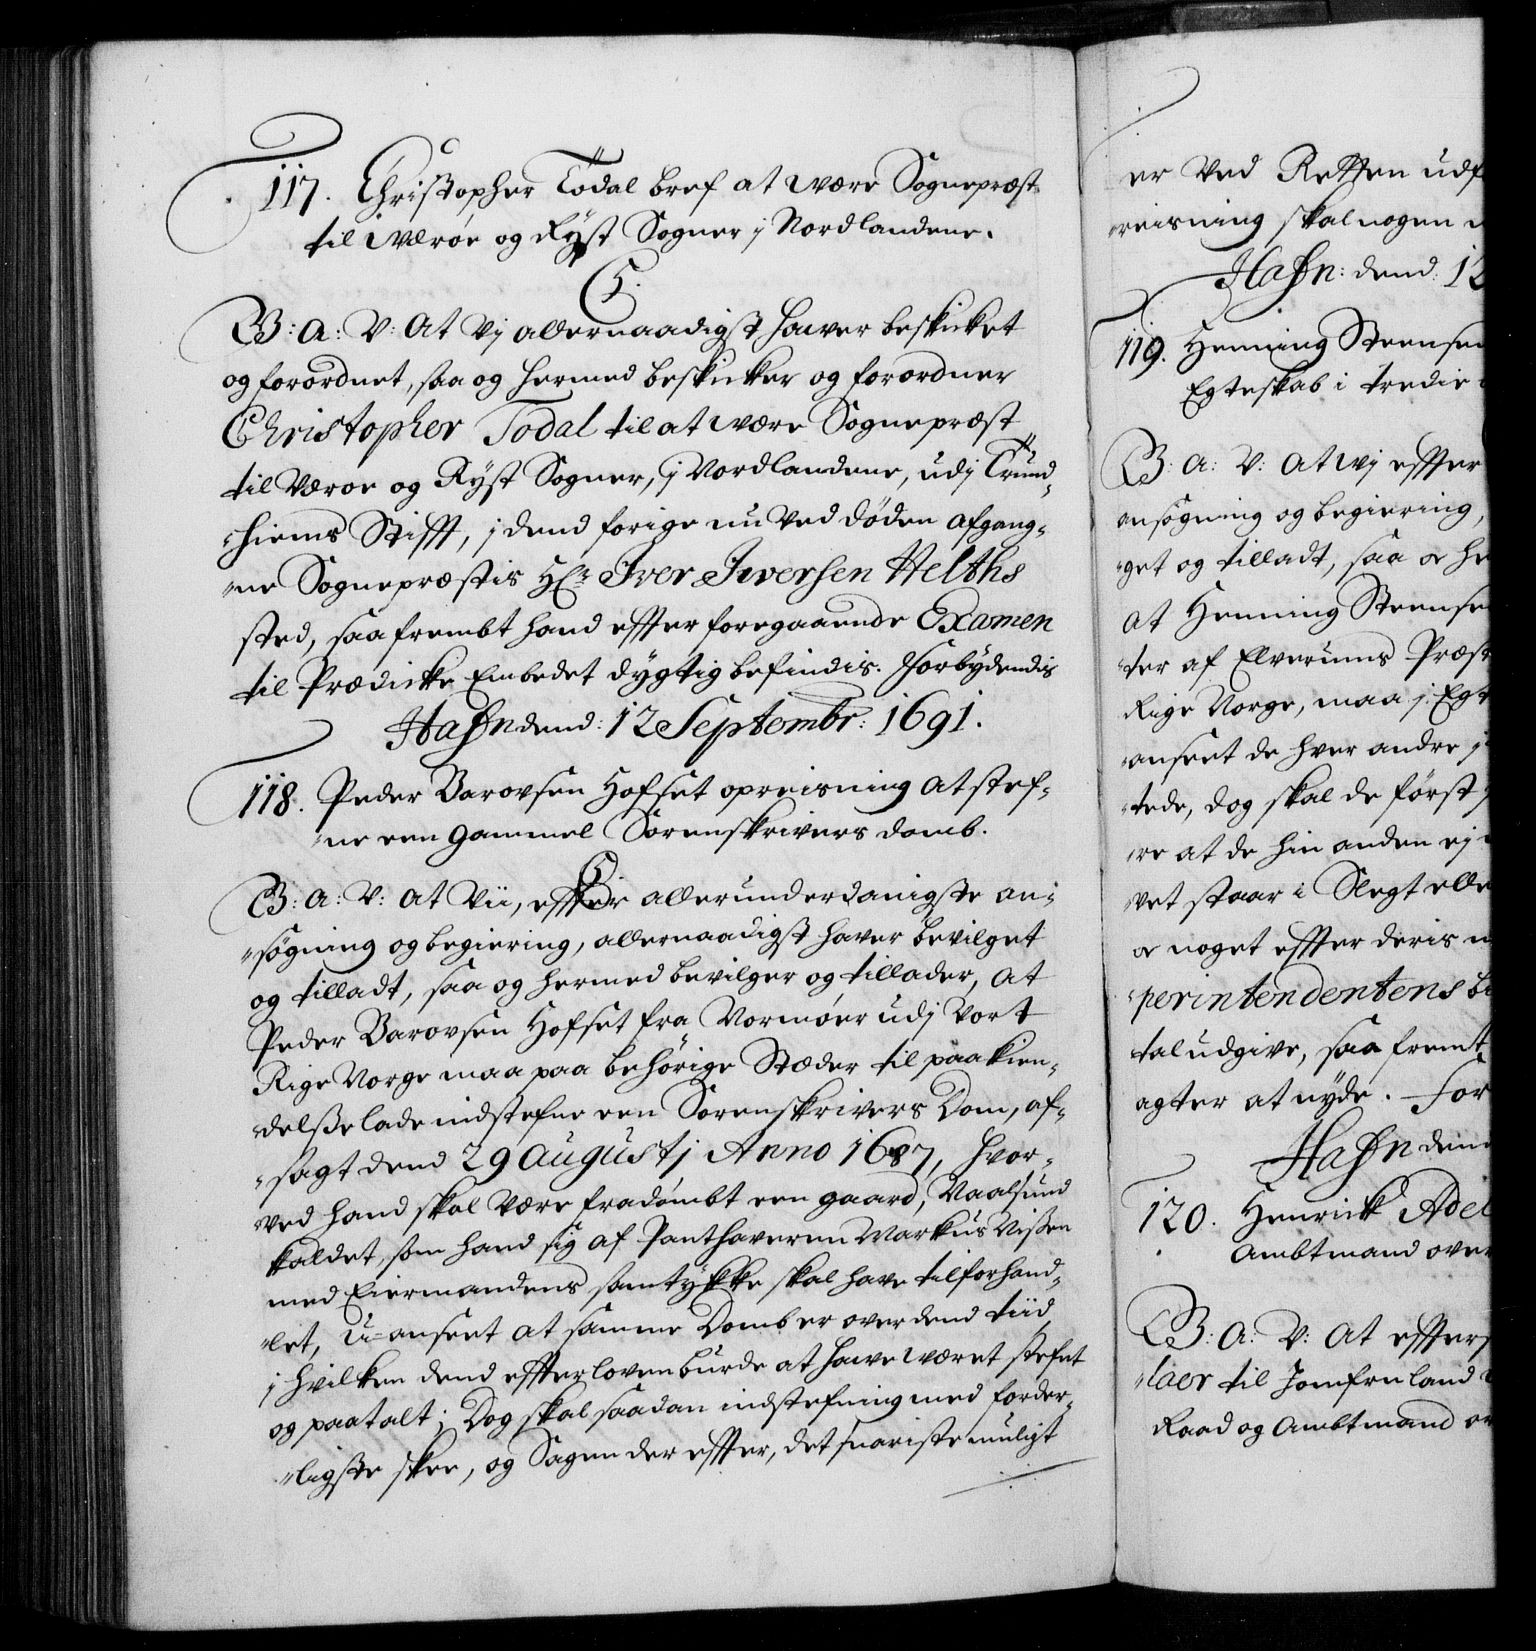 117. Christopher Tødal bref at være Sognepræst
til Werøe og Ryst Sogner j Nordlandene.
C5.
G: A: V: At Vj allernaadigst hawer beskicket
og forordnet, saa og hermed beskicker og forordner
Christopher Todal til at wære Sognepræst
til Væroe og Ryst Sogner, j Nordlandene, udj Trund¬
hiems Stifft, j dend forige nu Ved døden afgang¬
ne Sognepræstis Hr. Iver Iwersen Helths
sted, saa frembt hand effter foregaaende Examen
til Prædicke Embedet dygtig befindis. Forbydendis
Hafn dend: 12 Septembr: 1691.
118. Peder Barovsen Hofset opreisning at stef¬
ne een gammel Sorenskrivers domb.
C5.
G: A: V: At Vii, effter allerunderdanigste an¬
søgning og begiering, allernaadigst haver bevilget
og tilladt, saa og hermed bevilger og tillader, at
Peder Barovsen Hofset fra Normøer udj Vort
Rige Norge maa paa behörige Stæder til paakien¬
delße lade indstefne een Sorenskrivers Dom, af¬
sagt dend 29 Augustj Anno 1687, hvor¬
ved hand skal være fradømbt een gaard, Vaalsund
kaldet, som hand sig af Panthaveren Markus Nißen
med Eiermandens samtykke skal have tilforhand¬
let, U-anseet at samme Domb er over dend tiid
j hvilken dend effter loven burde at hawe wæret stefnt
og paatalt; Dog skal saadan indstefning med forder¬
ligste skee, og Sagen der effter, det snariste muligt
er Ved Retten udf
reisning skal nogen
Hafn: dend: 12
119. Henning Steensen
Egteskab i tredie
G: A: V: At wj effter
ansøgning og begiering,
get og tilladt, saa
at Henning Steense
ter af Elverums Præst
Rige Norge, maa j Egt
anseet de hver andre j
tede, dog skal de først
re at de hin anden ej
vet staar i Slegt elle
noget effter deris
perintendentens
tal udgive, saa fremt
agter at nyde. For
Hafn dend
120. Henrick Adel
Ambtmand over
G: A: V: At effters
laer til Jomfruland
Raad og Ambtmand ov